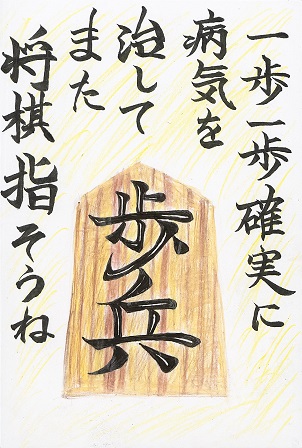 一歩一歩確実に
病気を
治して
また
将棋指そうね
歩兵